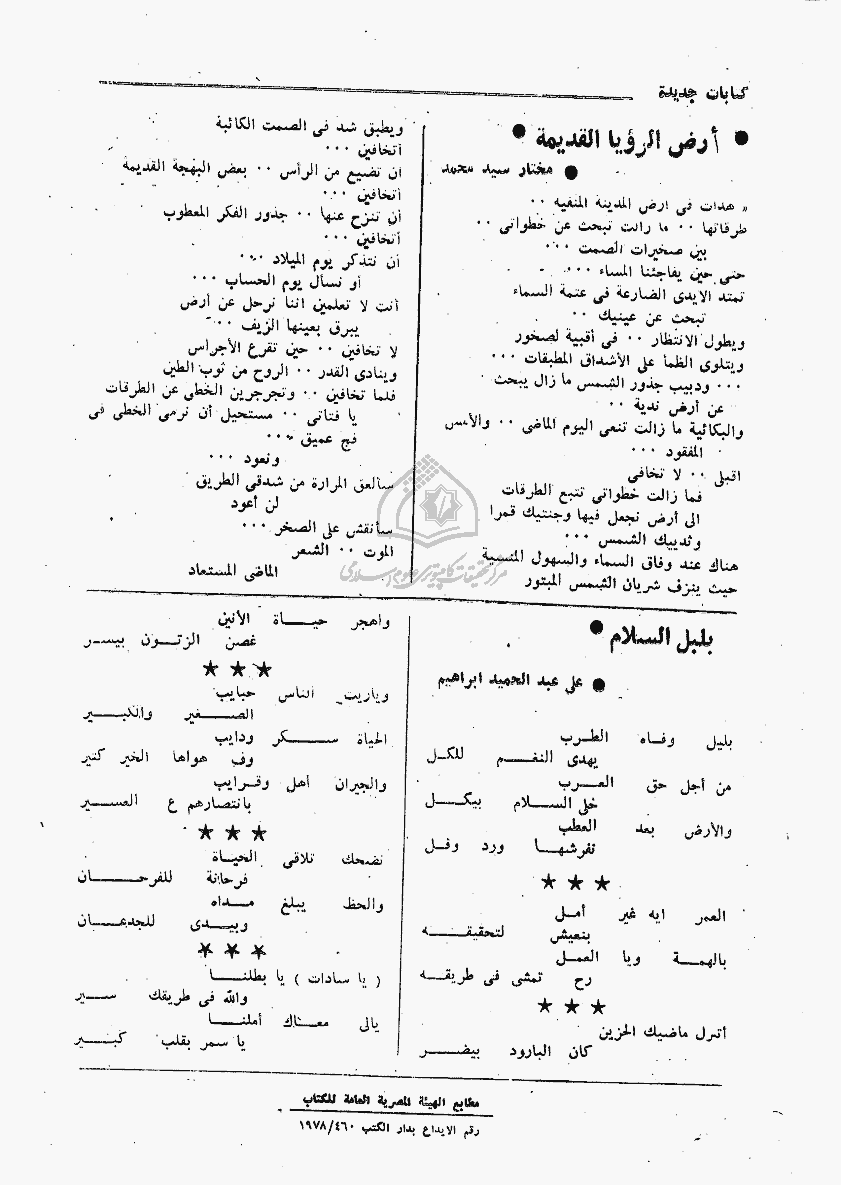 كتابات جديدة
● أرض الرؤيا القديمة ●
● مختار سيد محمد
« هدأت فى أرض المدينة المنفيه ٠٠
طرقاتها ٠٠ ما زالت تبحث عن خطواتى ٠٠
بين صخيرات الصمت ٠٠٠
حتى حين يفاجئنا المساء ٠٠٠
تمتد الايدى الضارعة فى عتمة السماء
تبحث عن عينيك ٠٠
ويطول الانتظار ٠٠ فى أقبية لصخور
ويتلوى الظمأ على الأشداق المطبقات ٠٠٠
٠٠٠ ودبيب جذور الشمس ما زال يبحث
عن أرض ندية ٠٠
والبكائية ما زالت تنعى اليوم الماضى ٠٠ والأمس
المفقود ٠٠٠
اقبلى ٠٠ لا تخافى
فما زالت خطواتى تتبع الطرقات
الى أرض نجعل فيها وجنتيك قمرا
وثدييك الشمس ٠٠٠
هناك عند وفاق السماء والسهول المنسية
حيث ينزف شريان الشمس المبتور
ويطبق شد فى الصمت الكائبة
أتخافين ٠٠٠
أن تضيع من الرأس ٠٠ بعض البهجة القديمة
أتخافين ٠٠٠
أن تنزح عنها ٠٠ جذور الفكر المعطوب
أتخافين ٠٠٠
أن نتذكر يوم الميلاد ٠٠٠
أو نسأل يوم الحساب ٠٠٠
أنت لا تعلمين اننا نرحل عن أرض
يبرق بعينها الزيف ٠٠
لا تخافين ٠٠ حين تقرع الأجراس
وينادى القدر ٠٠ الروح من ثوب الطين
فلما تخافين ٠٠ وتجرجرين الخطى عن الطرقات
يا فتاتى ٠٠ مستحيل أن نرمى الخطى فى
فج عميق ٠٠٠
ونعود ٠٠٠
سألعق المرارة من شدقى الطريق
لن أعود
سأنقش على الصخر ٠٠٠
الموت ٠٠ الشعر
الماضى المستعاد
مركز تحقيقات كامپيوترى علوم اسلامى
بلبل السلام ●
● على عبد الحميد ابراهيم
بلبل وفاه الطرب
يهدى النغم للكل
من أجل حق العرب
خلى السلام بيكل
والأرض بعد العطب
تفرشها ورد وفل
★ ★ ★
العمر ايه غير أمل
بنعيش لتحقيقه
بالهمة ويا العمل
رح تمشى فى طريقه
★ ★ ★
أترل ماضيك الحزين
كان البارود بيضر
واهجر حياة الأنين
غصن الزتون بيسر
★ ★ ★
وياريت الناس حبايب
الصغير والكبير
الحياة سكر ودايب
وف هواها الخير كتير
والجيران أهل وقرايب
بانتصارهم ع العسير
★ ★ ★
نضحك تلاقى الحياة
فرحانة للفرحان
والحظ يبلغ مداه
ويبدى للجدعان
★ ★ ★
( يا سادات ) يا بطلنا
والله فى طريقك سير
يالى معاك أملنا
يا سمر بقلب كبير
مطابع الهيئة المصرية العامة للكتاب
رقم الايداع بدار الكتب ١٩٧٨/٤٦٠